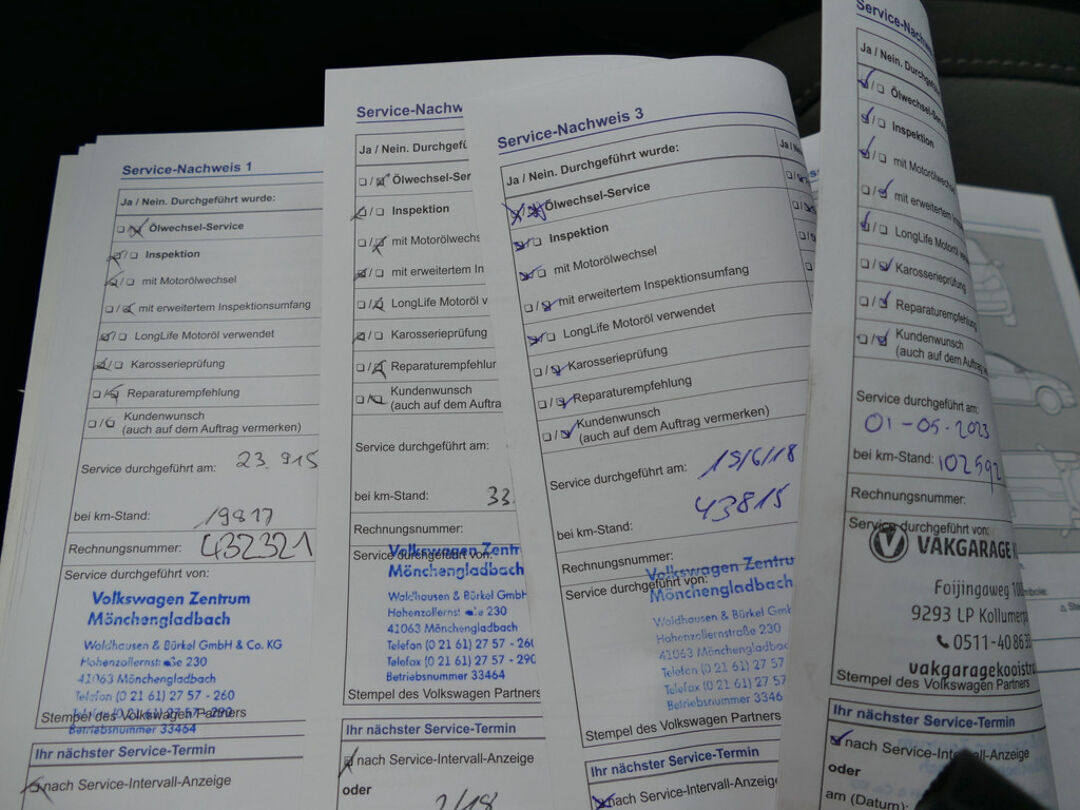 Service-Nachweis 1
Ja / Nein. Durchgeführt wurde:
Ölwechsel-Service
Inspektion
mit Motorölwechsel
mit erweitertem Inspektionsumfang
LongLife Motoröl verwendet
Karosserieprüfung
Reparaturempfehlung
Kundenwunsch
(auch auf dem Auftrag vermerken)
Service durchgeführt am: 23.915
bei km-Stand: 19817
Rechnungsnummer: 432321
Service durchgeführt von:
Volkswagen Zentrum
Mönchengladbach
Waldhausen & Bürkel GmbH & Co. KG
230
41063 Mönchengladbach
Telefon (0 21 61) 27 57 - 260
Stempel des Volkswagen Partners
Betriebsnummer 33464
Ihr nächster Service-Termin
nach Service-Intervall-Anzeige
Service-Nachw
Ja / Nein. Durchgef
Ölwechsel-Ser
Inspektion
mit Motorölwechs
mit erweitertem In
LongLife Motoröl v
Karosserieprüfung
Reparaturempfehlur
Kundenwunsch
(auch auf dem Auftra
Service durchgeführt am:
bei km-Stand: 33
Rechnungsnummer:
Service durchgeführt von:
Volkswagen Zentr
Mönchengladbach
Waldhausen & Bürkel GmbH
230
41063 Mönchengladbach
Telefon (0 21 61) 27 57 - 260
Telefax (0 21 61) 27 57 - 290
Betriebsnummer 33464
Stempel des Volkswagen Partners
Ihr nächster Service-Termin
nach Service-Intervall-Anzeige
oder
2/18
Service-Nachweis 3
Ja / Nein. Durchgeführt wurde:
Ölwechsel-Service
Inspektion
mit Motorölwechsel
mit erweitertem Inspektionsumfang
LongLife Motoröl verwendet
Karosserieprüfung
Reparaturempfehlung
Kundenwunsch
(auch auf dem Auftrag vermerken)
Service durchgeführt am: 19/6/18
bei km-Stand: 43815
Rechnungsnummer:
Service durchgeführt von:
Volkswagen Zentru
Mönchengladbach
Waldhausen & Bürkel GmbH
Hohenzollernstraße 230
41063 Mönchengladbac
Telefon (0 21 61) 27 57
Telefax (0 21 61) 27 57
Betriebsnummer 3346
Stempel des Volkswagen Partners
Ihr nächster Service-Termin
nach Service-Intervall-Anzeige
Ja / N
Service-Nachweis
Ja / Nein. Durchgeführ
Ölwechsel-Service
Inspektion
mit Motorölwechsel
mit erweitertem
LongLife Motoröl
Karosserieprüfung
Reparaturempfehlung
Kundenwunsch
(auch auf dem Auft
Service durchgeführt am:
01-05-2023
bei km-Stand: 102592
Rechnungsnummer:
Service durchgeführt von:
VAKGARAGE
Foijingaweg 10
9293 LP Kollumer
0511-40 863
vakgaragekooistra
Stempel des Volkswagen Partners
Ihr nächster Service-Termin
nach Service-Intervall-Anzeige
oder
am (Datum)